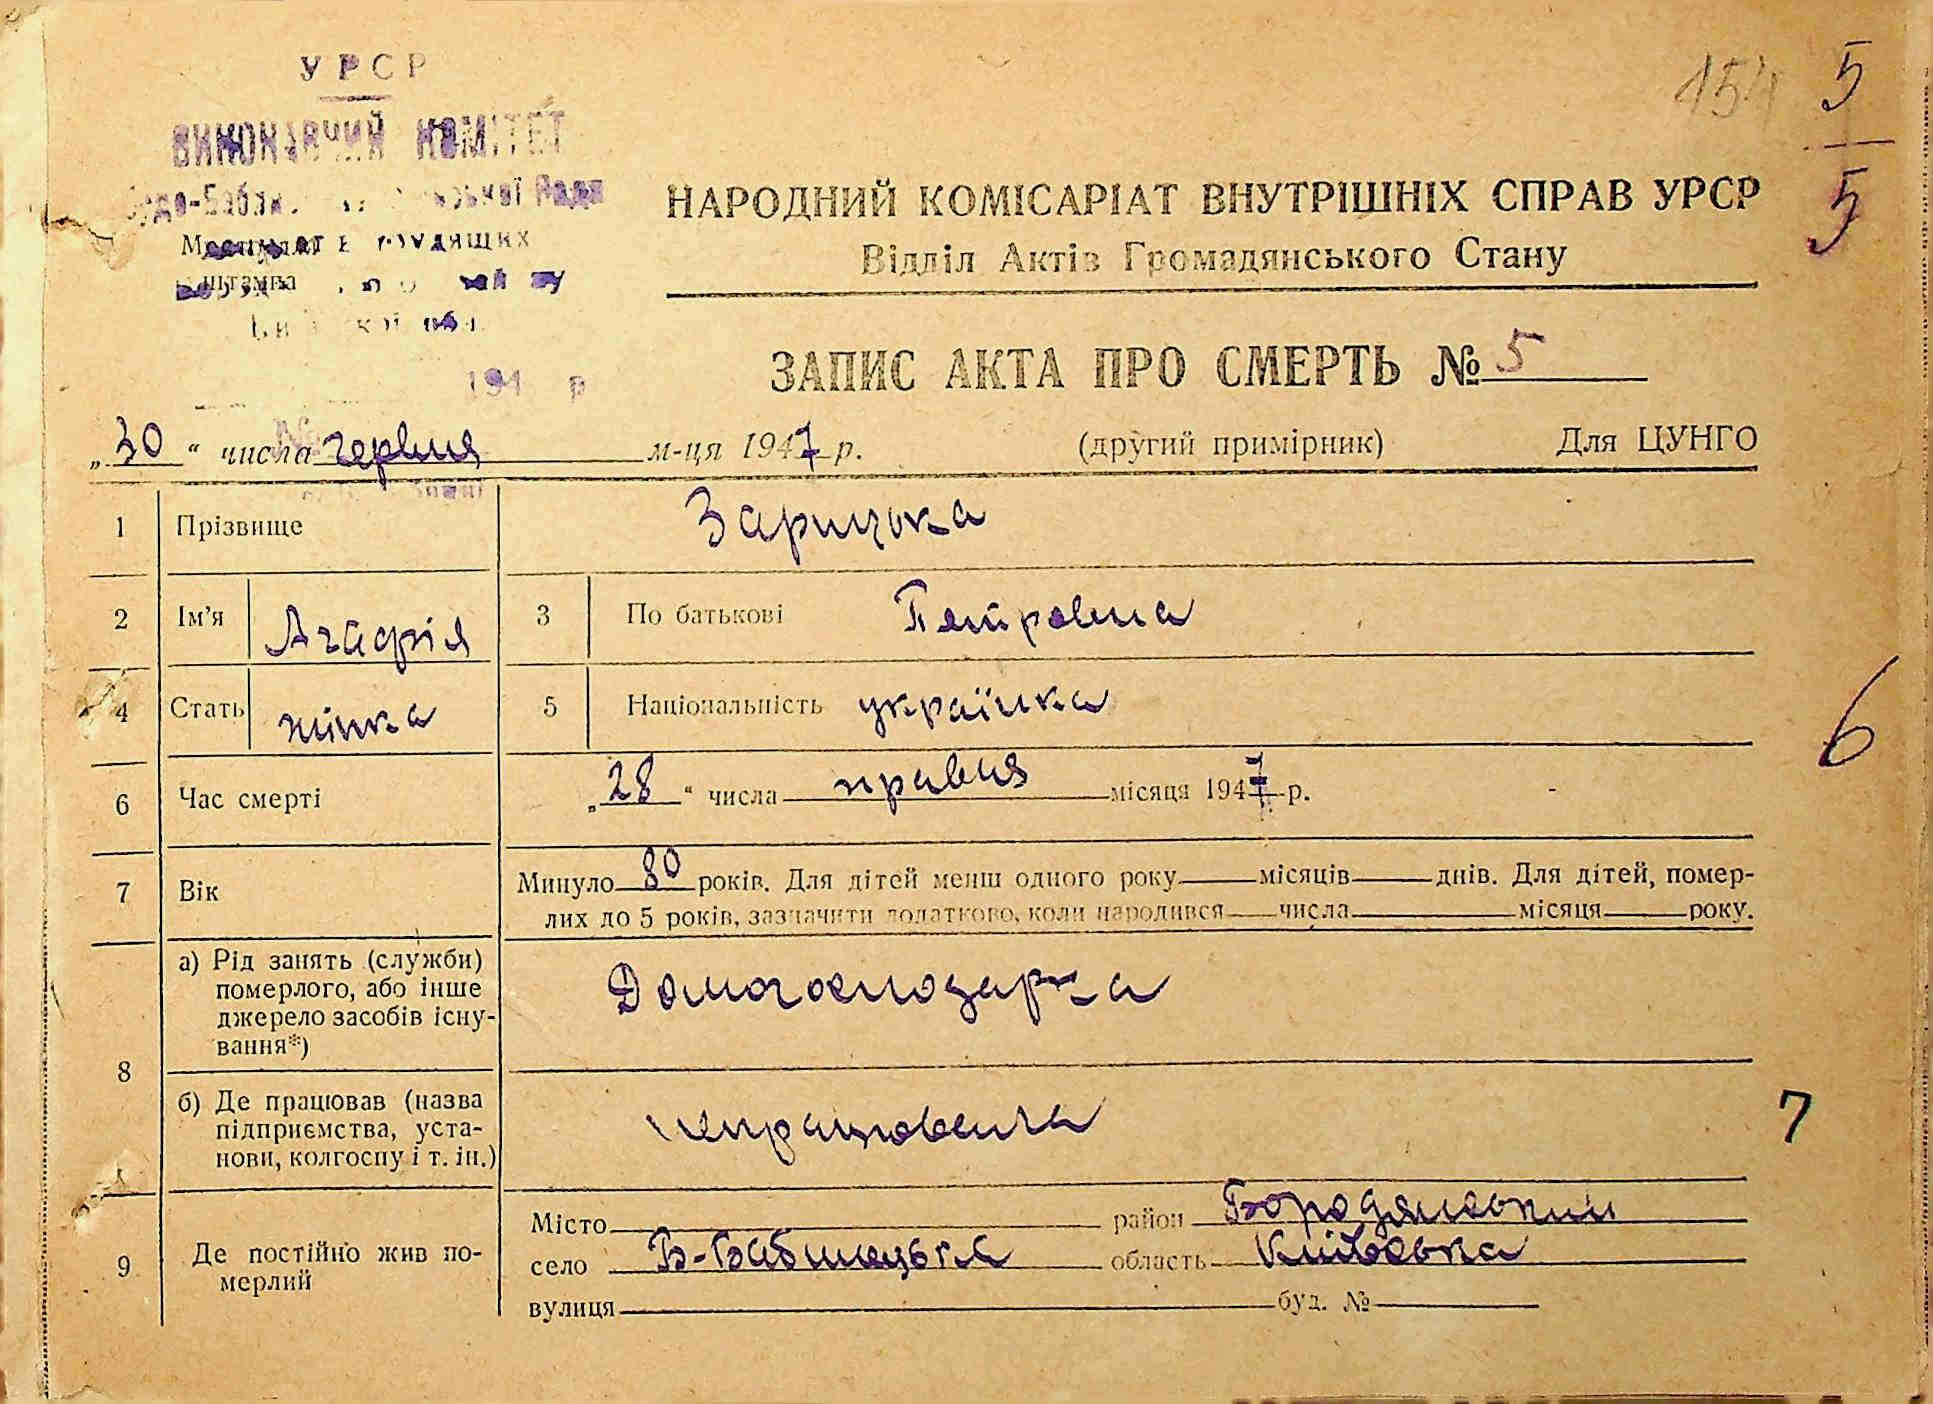 УРСР
ВИКОНАВЧИЙ КОМІТЕТ
154
5
5
НАРОДНИЙ КОМІСАРІАТ ВНУТРІШНІХ СПРАВ УРСР
Відділ Актів Громадянського Стану
штампа
194 р
ЗАПИС АКТА ПРО СМЕРТЬ № 5
„30“ числа червня м-ця 1947 р. (другий примірник) Для ЦУНГО
1 Прізвище Зарицька
2 Ім'я Агафія 3 По батькові Петровна
4 Стать жінка 5 Національність українка
6
6 Час смерті „28“ числа травня місяця 1947 р.
7 Вік Минуло 80 років. Для дітей менш одного року місяців днів. Для дітей, помер-
лих до 5 років, зазначити додатково, коли народився числа місяця року.
8 а) Рід занять (служби)
померлого, або інше
джерело засобів існу-
вання*)
Домогосподарка
б) Де працював (назва
підприємства, уста-
нови, колгоспу і т. ін.)
непрацювала
7
9 Де постійно жив по-
мерлий
Місто район Бородянський
село область Київська
вулиця буд. №